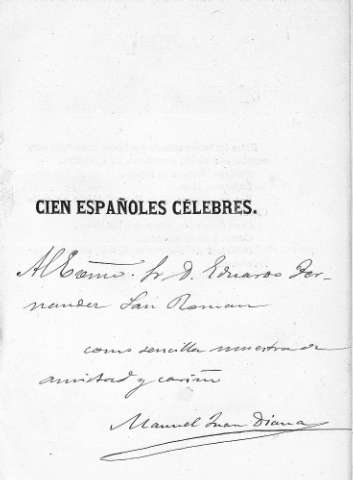 CIEN ESPAÑOLES CÉLEBRES.
Al Exmo. Sr D. Eduardo Fer-
nandez San Roman
como sencilla muestra de
amistad y cariño
Manuel Juan Diana